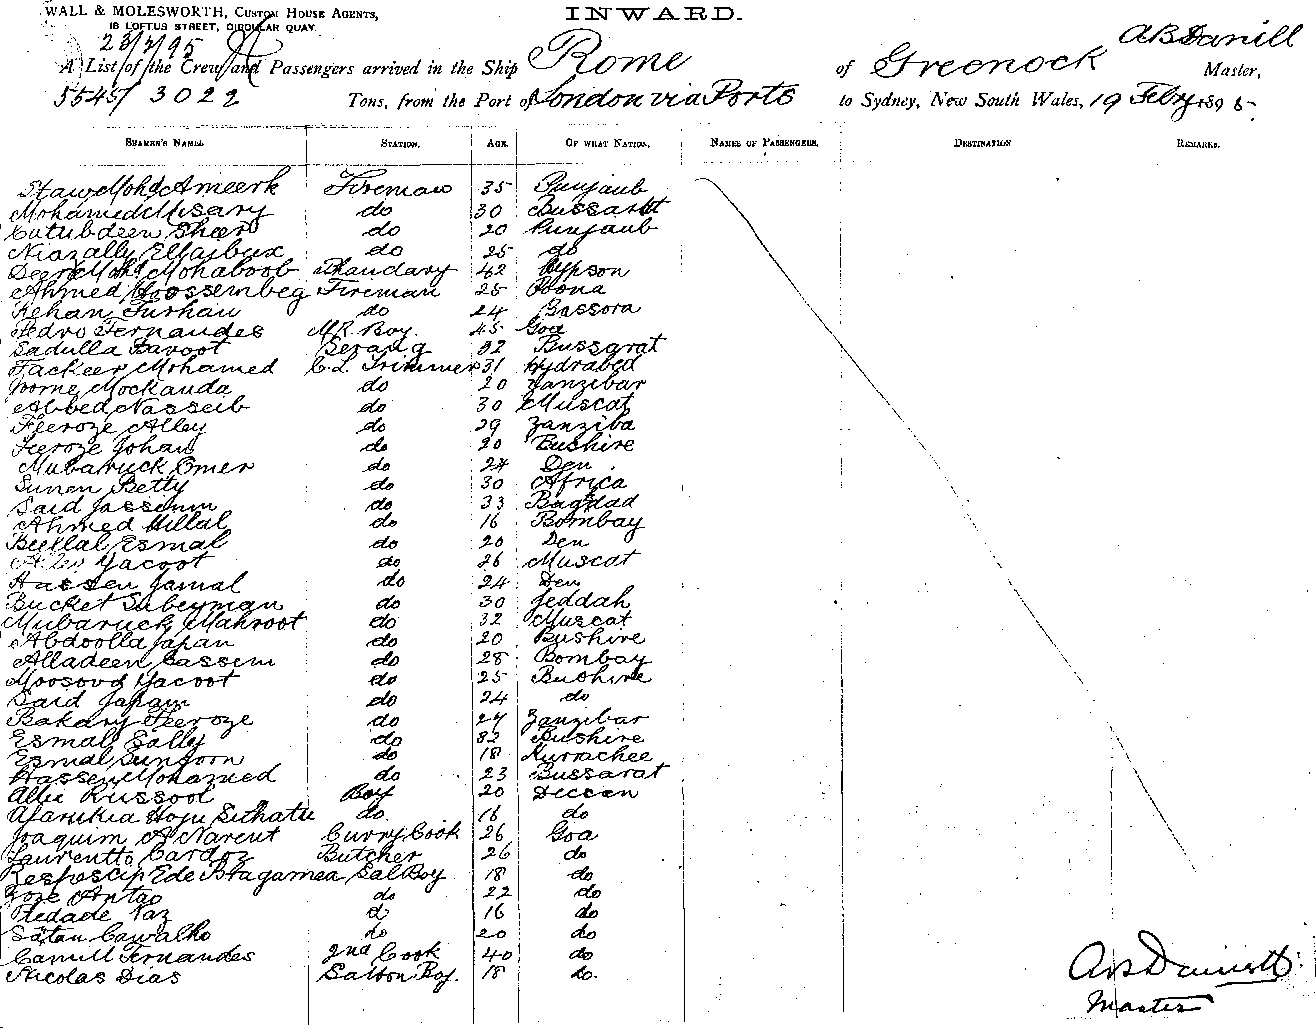 WALL & MOLESWORTH, CUSTOM HOUSE AGENTS,
18 LOFTUS STREET, CIRCULAR QUAY.
INWARD.
A List of the Crew and Passengers arrived in the Ship Rome of Greenock Master,
5545/3022 Tons, from the Port of London via Ports to Sydney, New South Wales, 19 Febry 1895.
SEAMEN'S NAMES. STATION. AGE. OF WHAT NATION. NAMES OF PASSENGERS. DESTINATION REMARKS.
Ameerk Fireman 35 Punjaub
Mohamed Misary do 30
Cutubdeen Sheer do 20 Punjaub
Niazally do 25 do
Mohaboob Bhandary 42
Ahmed Hoossembeg Fireman 25 Poona
Rehan Furhan do 24 Bassora
Pedro Fernandes Boy. 45 Goa
Sadulla Serang 32 Bussarat
Fackeer Mohamed C.L. Trimmer 31 Hydrabad
Mockanda do 20 Zanzibar
Abbed Nasseib do 30 Muscat
Feeroze Alley do 29 Zanziba
Feeroze Johan do 20 Bushire
Mubaruck Omer do 24 Den
Betty do 30 Africa
Said Jassoum do 33 Bagdad
Ahmed Hillal do 16 Bombay
Billal Esmal do 20 Den
Yacoot do 26 Muscat
Hassen Jamal do 24 Den
Bucket Suleyman do 30 Jeddah
Mubaruck Mahroot do 32 Muscat
Abdoolla Japan do 20 Bushire
Alladeen Cassem do 28 Bombay
Yacoot do 25 Bushire
Said Japan do 24 do
Bakary Feeroze do 27 Zanzibar
Esmal Sally do 32 Bushire
Esmal do 18 Kurrachee
Hassen Mohamed do 23 Bussarat
Allie Russool Boy 20 Deccan
do. 16 do
Joaquim A Narcut Curry Cook 26 Goa
Laurentto Cardoz Butcher 26 do
Bragamea Sal Boy 18 do
Antao do 22 do
Vaz 16 do
Satan Cawalho do 20 do
Camill Fernandes 2nd Cook 40 do
Nicolas Dias Saloon Boy. 18 do.
Master